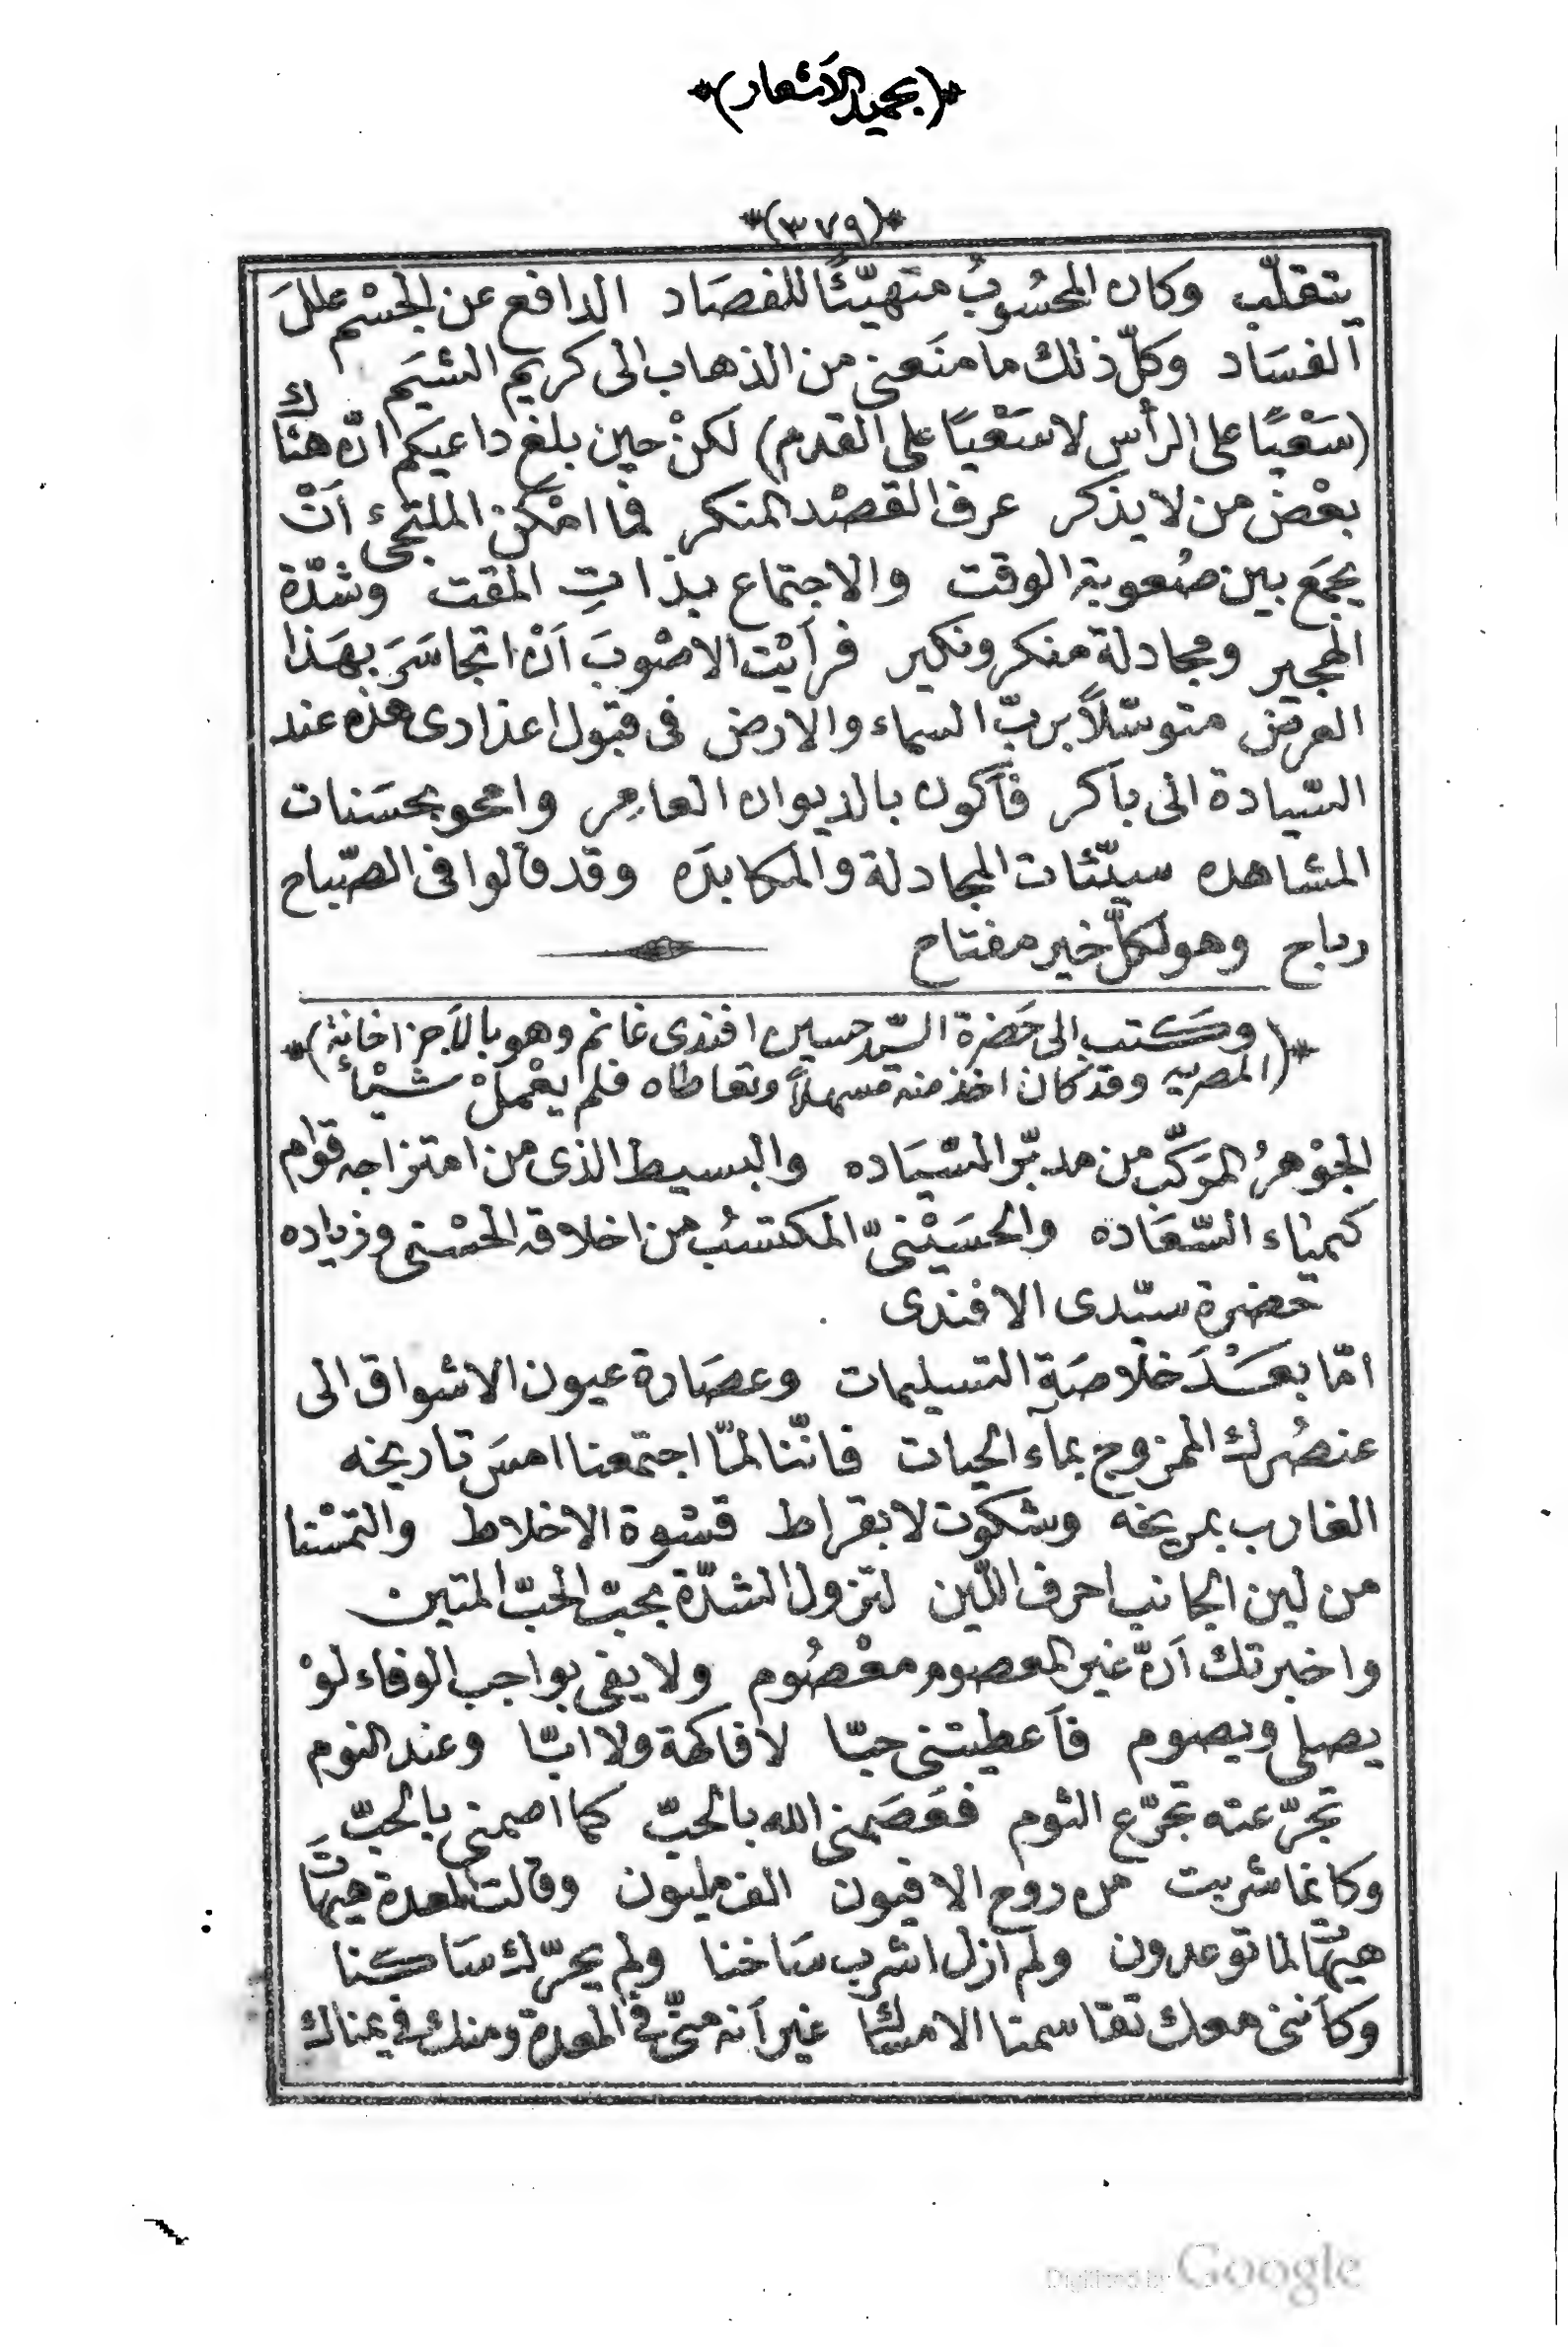 *(بحميد الأشعار)*
*(٣٧٩)*
يتقلّب وكان المحسُوبُ متهيّئًا للفصَاد الدافع عن الجسْم عللَ
الفسَاد وكلّ ذلك ما منَعنى من الذهاب الى كريم الشيَم
(سَعْيًا على الرأس لا سَعْيًا على القدم) لكنْ حين بلغ داعيكم انّ هناك
بعْض من لا يذكر عرف القصْد المنكر فما امْكن الملتجىء اَنْ
يجمَع بين صُعوبة الوقت والاجتماع بذاتِ المقت وشدّة
الهجير ومجادلة منكر ونكير فرأيْت الاصْوبَ اَنْ اتجاسَرَ بهَذا
العرض متوسّلاً بربّ السماء والارض فى قبول اعذارى هذه عند
السّيادة الى باكر فأكون بالديوان العامِر وامحو بحسَنات
المشاهده سيّئات المجادلة والمكابدَه وقد قالوا فى الصّباح
رباح وهو لكلّ خير مفتاح
*(وكتب الى حَضرة السّيد حسين افندى غانم وهو بالاَجزاخانة)*
(المصريه وقد كان اخذ منه مسهلاً وتعاطاه فلم يعْملْ شيْأ)
الجوْهرُ المركّب من مدبّر السّيَاده والبسيط الذى من امتزاجه قوام
كيمياء السّعَاده والحسَيْنىّ المكتسُب من اخلاقه الحسْنى وزياده
حضرة سيّدى الافندى
امّا بعَـْدَ خلاصَة التسليمات وعصَارة عيون الاشواق الى
عنصُرك الممزوج بمآء الحيات فانّنا لمّا اجتمعنا امسَ تاريخه
الغارب بمريخه وشكوت لابقراط قسْوة الاخلاط والتمسْنا
من لين الجانب احرف اللّين لتزول الشدّة بحبّ الحبّ المتين
واخبرتك اَنّ غير المعصوم مغْصُوم ولا يفى بواجب الوفاء لوْ
يصلى ويصوم فأعطيتنى حبّا لا فاكهة ولا ابّا وعند النوم
تجرّعته تجرّع الثوم فعَصَمنى الله بالحبّ كما اصمنى بالحبّ
وكانما شربت من روح الافيون الف مليون وقالت المعدة هيهاتَ
هيهات لما توعدون ولم أزل اشرب سَاخنا ولم يحرّك سَاكنا
وكأننى معك تقاسمنا الامساك غير اَنه منّى فى المعدة ومنك فى يمناك
Digitized by Google